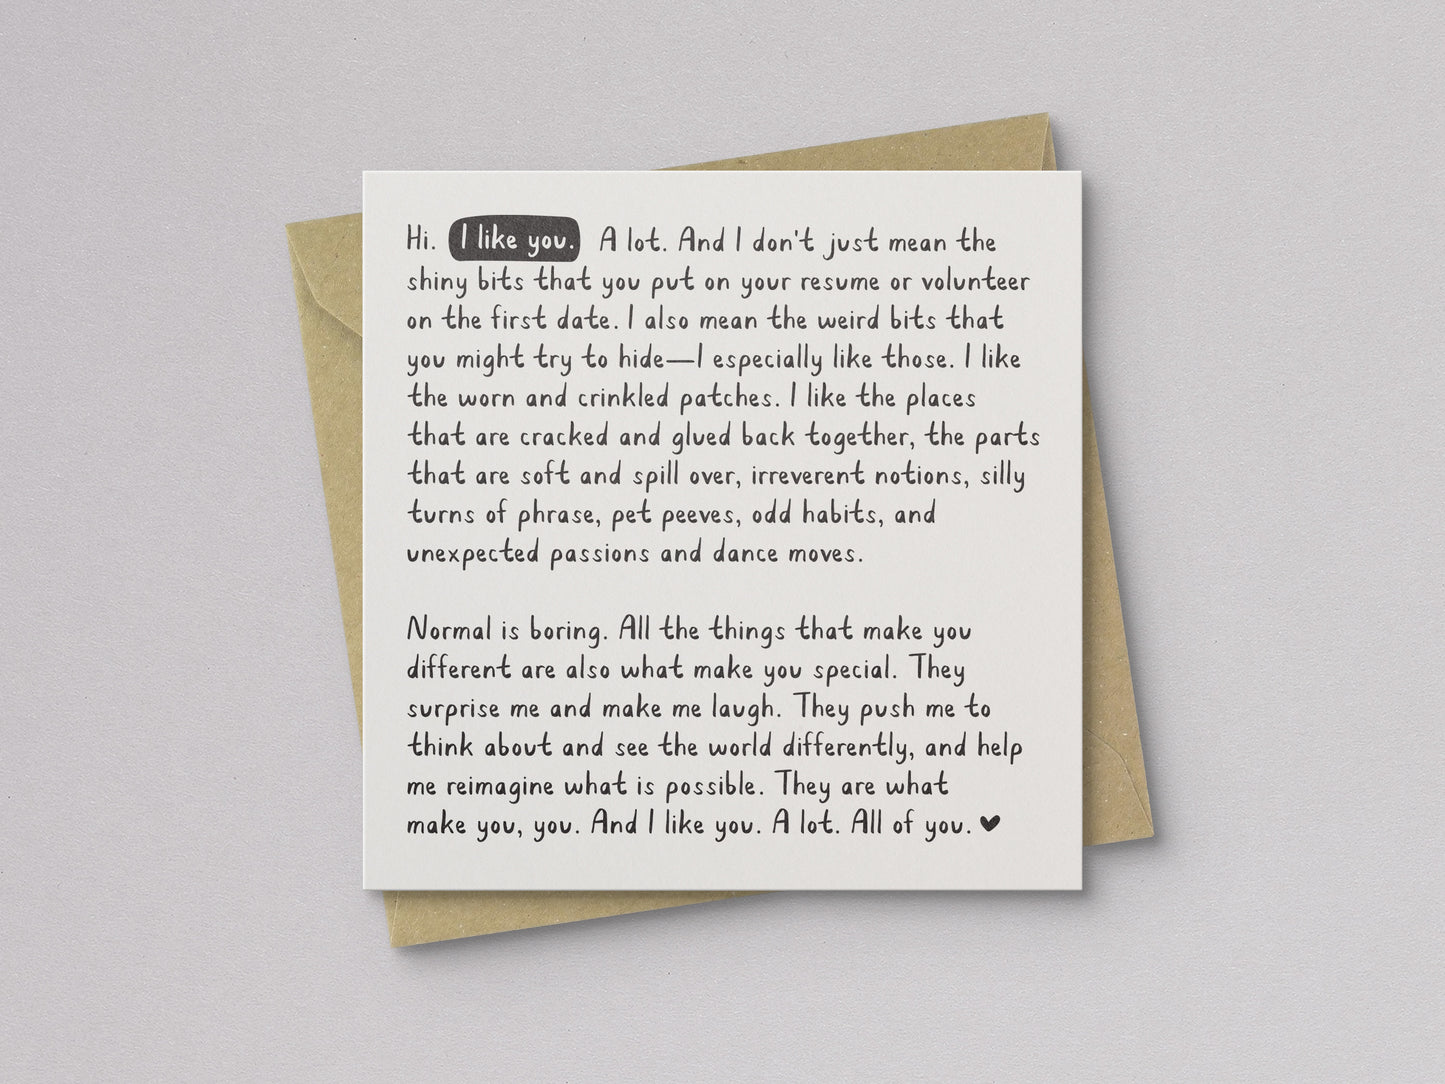 Hi. I like you. A lot. And I don't just mean the
shiny bits that you put on your resume or volunteer
on the first date. I also mean the weird bits that
you might try to hide—I especially like those. I like
the worn and crinkled patches. I like the places
that are cracked and glued back together, the parts
that are soft and spill over, irreverent notions, silly
turns of phrase, pet peeves, odd habits, and
unexpected passions and dance moves.
Normal is boring. All the things that make you
different are also what make you special. They
surprise me and make me laugh. They push me to
think about and see the world differently, and help
me reimagine what is possible. They are what
make you, you. And I like you. A lot. All of you. ♥